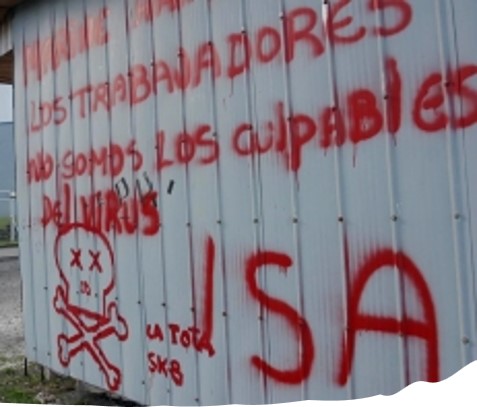 LOS TRABAJADORES
NO SOMOS LOS CULPABLES
DEL VIRUS
ISA
LA TOTA
SKB